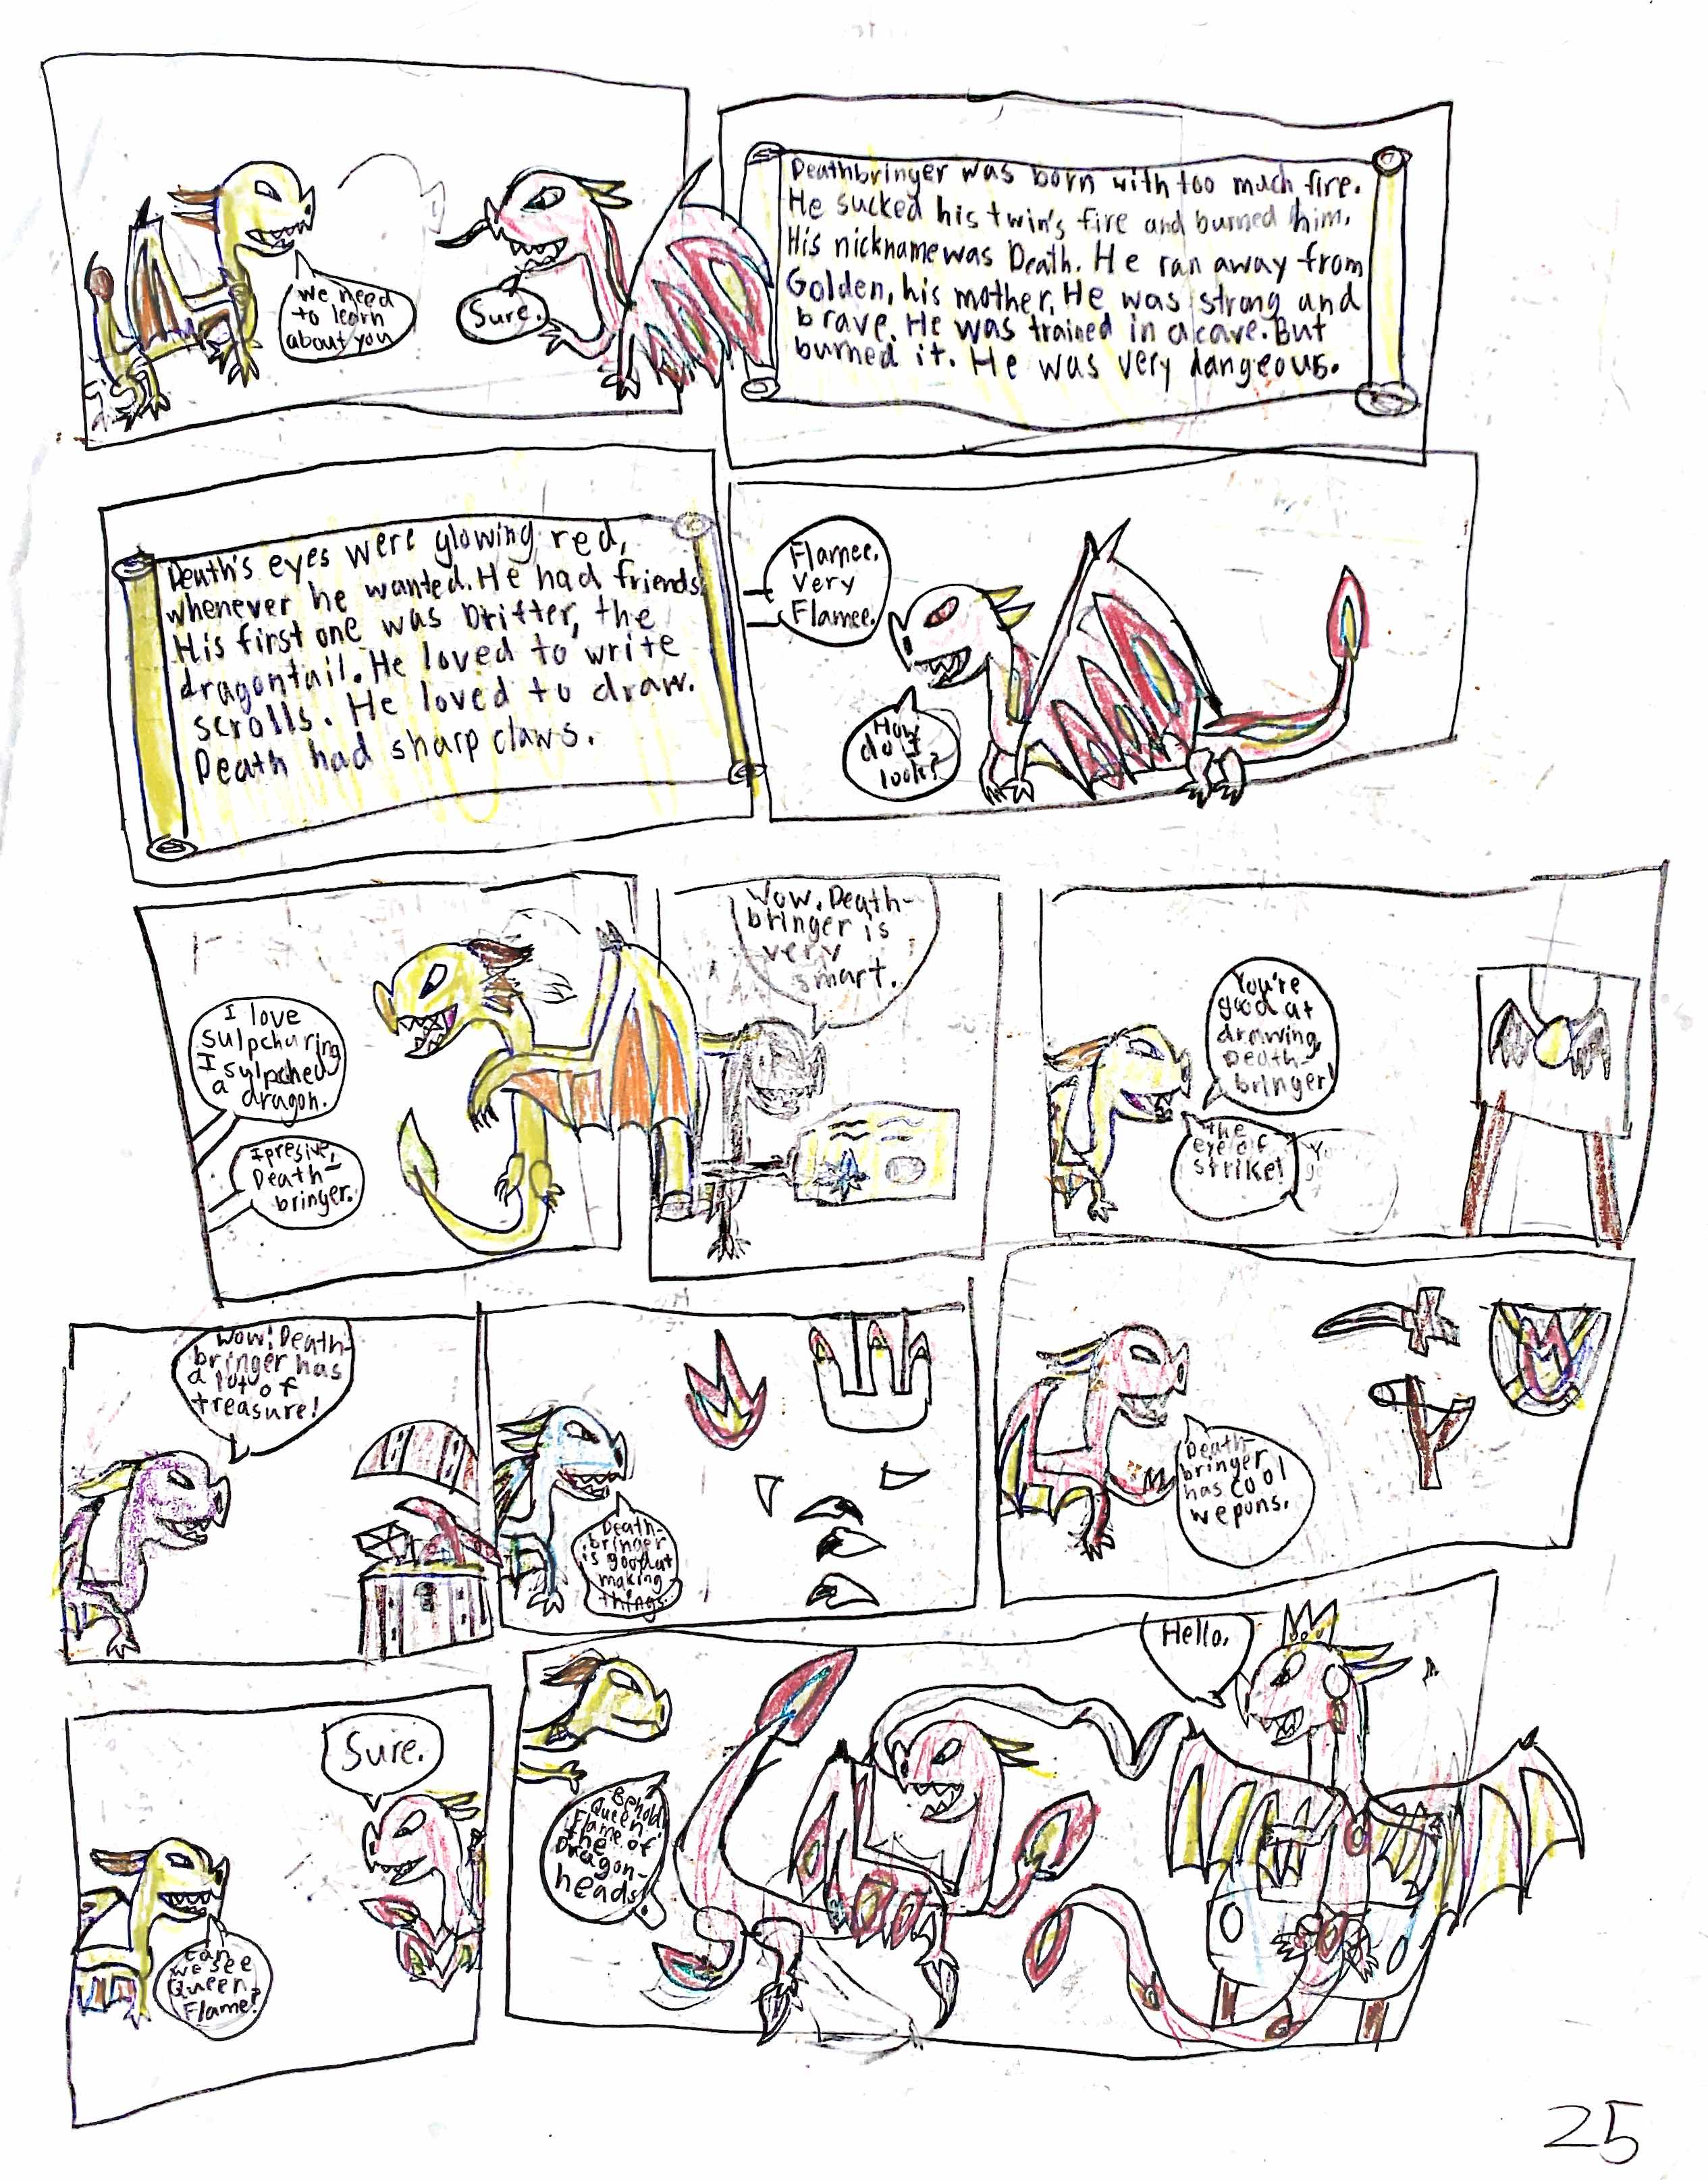 We need
to learn
about you
Sure.
Deathbringer was born with too much fire.
He sucked his twin's fire and burned him.
His nickname was Death. He ran away from
Golden, his mother. He was strong and
brave. He was trained in a cave. But
burned it. He was very dangeous.
Death's eyes were glowing red,
whenever he wanted. He had friends.
His first one was Drifter, the
dragontail. He loved to write
scrolls. He loved to draw.
Death had sharp claws.
Flamee.
Very
Flamee.
How
do I
look?
I love
sulpcharing
I sulpched
a dragon.
Ipresive,
Death-
bringer.
Wow. Death-
bringer is
very
smart.
You're
good at
drawing,
Death-
bringer!
The
eye of
strike!
Wow! Death-
bringer has
a lot of
treasure!
Death-
bringer
is good at
making
things.
Death-
bringer
has cool
wepons.
Can
we see
Queen
Flame?
Sure.
Behold
Queen
Flame of
the
Dragon-
heads!
Hello.
25